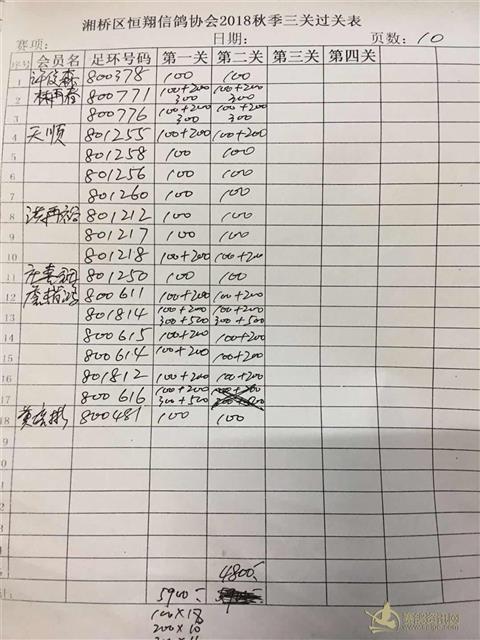 湘桥区恒翔信鸽协会2018秋季三关过关表
赛项: 日期: 页数: 10
序号 会员名 足环号码 第一关 第二关 第三关 第四关
1 800378 100 100
2 林再春 800771 100+200 300 100+200 300
3 800776 100+200 300 100+200 300
4 天顺 801255 100+200 100+200
5 801258 100 100
6 801256 100 100
7 801260 100 100
8 801212 100 100
9 801217 100 100
10 801218 100+200 100+200
11 801250 100 100
12 800611 100+200 100+200
13 801814 100+200 300+500 100+200 300+500
14 800615 100+200 100+200
15 800614 100+200 100+200
16 801812 100+200 100+200
17 800616 100+200 300+500
18 800481 100 100
4800
5900
100×18
200×10
赛鸽资讯网